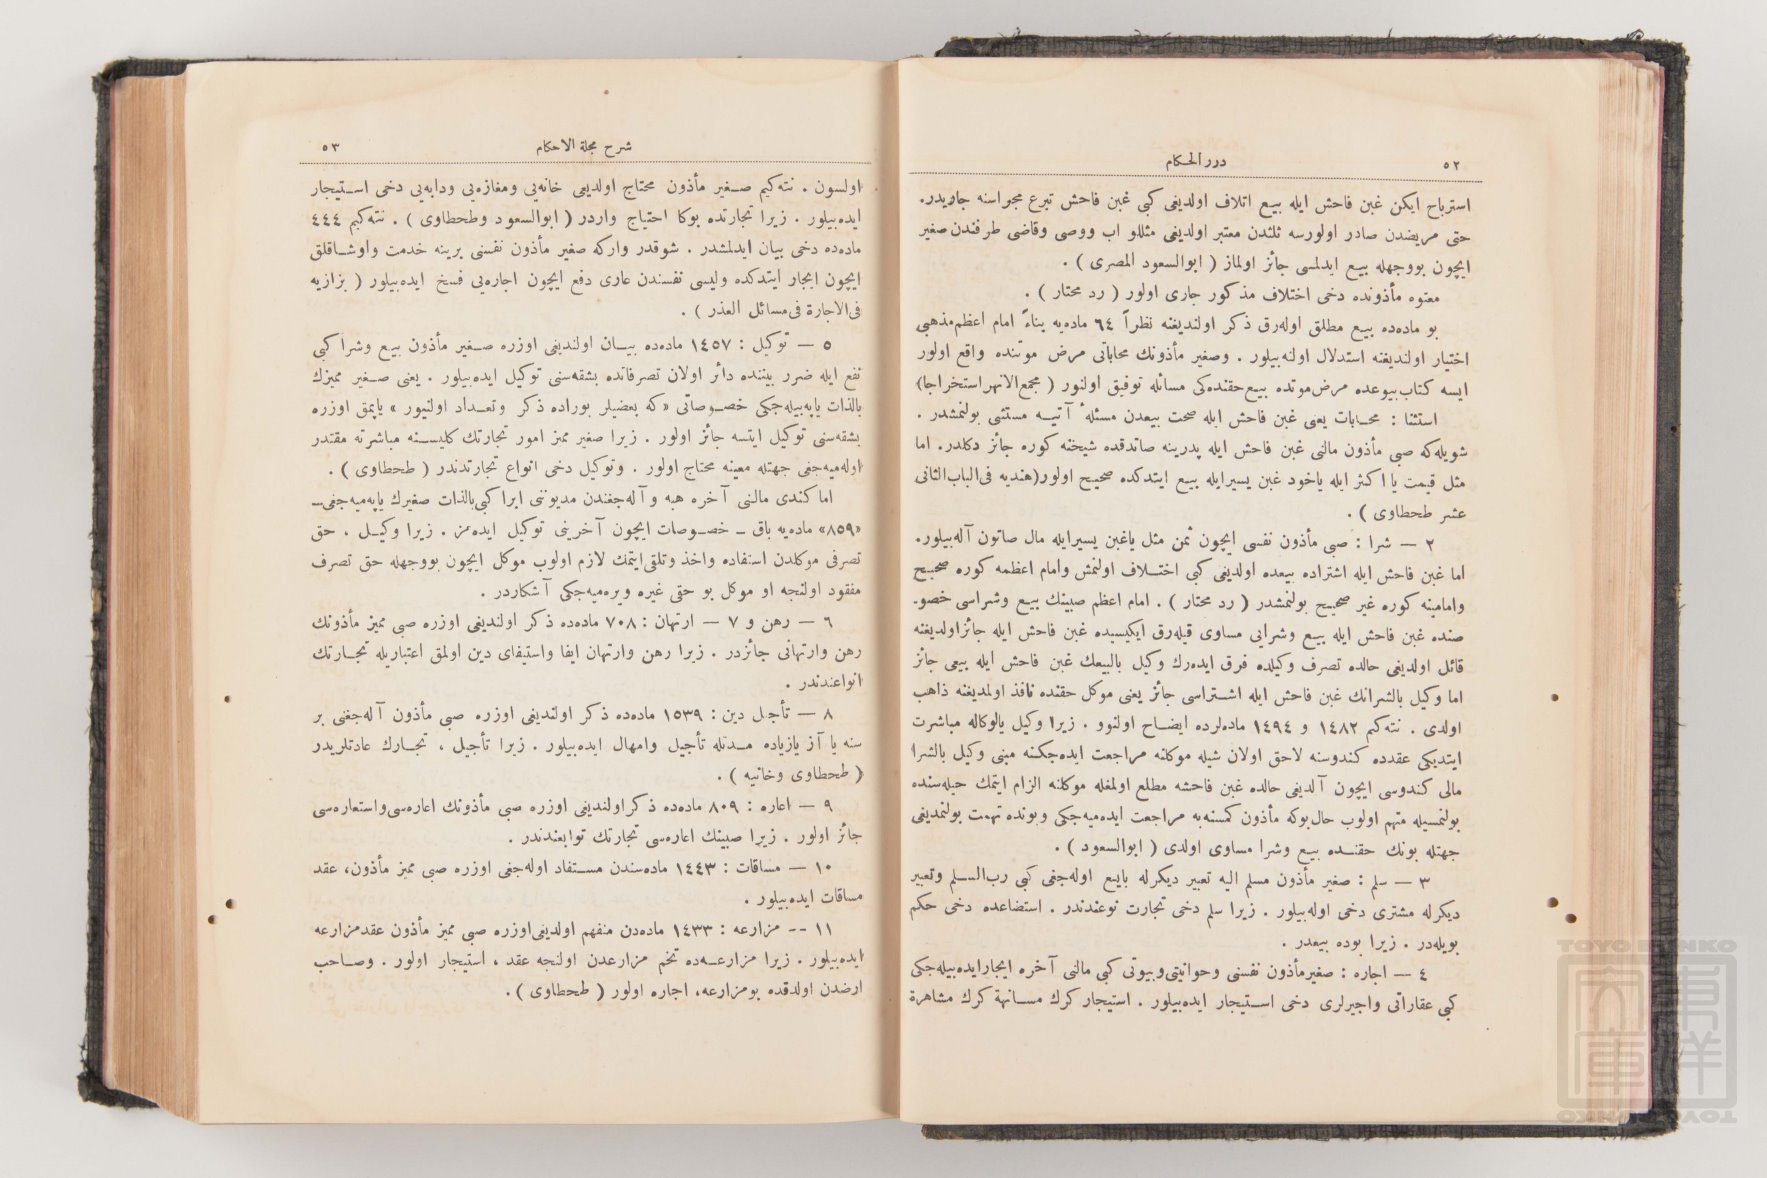 ٥٢
درر الحكام
استرباح ايكن غبن فاحش ايله بيع اتلاف اولديغى كبى غبن فاحش تبرع مجراسنه جاريدر.
حتى مريضدن صادر اولورسه ثلثدن معتبر اولديغى مثللو اب ووصى وقاضى طرفندن صغير
ايچون بووجهله بيع ايدلمسى جائز اولماز ( ابوالسعود المصرى ) .
معتوه مأذونده دخى اختلاف مذكور جارى اولور ( رد محتار ) .
بو ماده‌ده بيع مطلق اوله‌رق ذكر اولنديغنه نظراً ٦٤ ماده‌يه بناءً امام اعظم‌مذهبى
اختيار اولنديغنه استدلال اولنه‌بيلور . وصغير مأذونك محاباتى مرض موتنده واقع اولور
ايسه كتاب‌بيوعده مرض‌موتده بيع‌حقنده‌كى مسائله توفيق اولنور ( مجمع‌الانهراستخراجا)
استثنا : محابات يعنى غبن فاحش ايله صحت بيعدن مسئلهٔ آتيه مستثنى بولنمشدر .
شويله‌كه صبى مأذون مالنى غبن فاحش ايله پدرينه صاتدقده شيخته كوره جائز دكلدر. اما
مثل قيمت يا اكثر ايله ياخود غبن يسيرايله بيع ايتدكده صحيح اولور(هنديه فى‌الباب‌الثانى
عشر طحطاوى ) .
٢ — شرا : صبى مأذون نفسى ايچون ثمن مثل ياغبن يسيرايله مال صاتون آله‌بيلور.
اما غبن فاحش ايله اشتراده بيعده اولديغى كبى اختلاف اولنمش وامام اعظمه كوره صحيح
وامامينه كوره غير صحيح بولنمشدر ( رد محتار ) . امام اعظم صبينك بيع وشراسى خصو-
صنده غبن فاحش ايله بيع وشرايى مساوى قيله‌رق ايكيسيده غبن فاحش ايله جائزاولديغنه
قائل اولديغى حالده تصرف وكيلده فرق ايده‌رك وكيل بالبيعك غبن فاحش ايله بيعى جائز
اما وكيل بالشرانك غبن فاحش ايله اشتراسى جائز يعنى موكل حقنده نافذ اولمديغنه ذاهب
اولدى . نته‌كيم ١٤٨٢ و ١٤٩٤ ماده‌لرده ايضاح اولنور . زيرا وكيل بالوكاله مباشرت
ايتديكى عقدده كندوسنه لاحق اولان شيله موكلنه مراجعت ايده‌جكنه مبنى وكيل بالشرا
مالى كندوسى ايچون آلديغى حالده غبن فاحشه مطلع اولمغله موكلنه الزام ايتمك حيله‌سنده
بولنمسيله متهم اولوب حال‌بوكه مأذون كمسنه‌يه مراجعت ايده‌ميه‌جكى وبونده تهمت بولنمديغى
جهتله بونك حقنده بيع وشرا مساوى اولدى ( ابوالسعود ) .
٣ — سلم : صغير مأذون مسلم اليه تعبير ديكرله بايع اوله‌جغى كبى رب‌السلم وتعبير
ديكرله مشترى دخى اوله‌بيلور . زيرا سلم دخى تجارت نوعندندر . استضاعده دخى حكم
بويله‌در . زيرا بوده بيعدر .
٤ — اجاره : صغيرمأذون نفسنى وحوانيتى‌وبيوتى كبى مالنى آخره ايجارايده‌بيله‌جكى
كبى عقاراتى واجيرلرى دخى استيجار ايده‌بيلور . استيجار كرك مسانهة كرك مشاهرة
شرح مجلة الاحكام
٥٣
اولسون . نته‌كيم صغير مأذون محتاج اولديغى خانه‌يى ومغازه‌يى ودابه‌يى دخى استيجار
ايده‌بيلور . زيرا تجارتده بوكا احتياج واردر ( ابوالسعود وطحطاوى ) . نته‌كيم ٤٤٤
ماده‌ده دخى بيان ايدلمشدر . شوقدر واركه صغير مأذون نفسنى برينه خدمت واوشاقلق
ايچون ايجار ايتدكده وليسى نفسندن عارى دفع ايچون اجاره‌يى فسخ ايده‌بيلور ( بزازيه
فى‌الاجارة فى‌مسائل العذر ) .
٥ — توكيل : ١٤٥٧ ماده‌ده بيان اولنديغى اوزره صغير مأذون بيع وشراكبى
نفع ايله ضرر بيننده دائر اولان تصرفاتده بشقه‌سنى توكيل ايده‌بيلور . يعنى صغير مميزك
بالذات ياپه‌بيله‌جكى خصوصاتى «كه بعضيلر بوراده ذكر وتعداد اولنيور» ياپمق اوزره
بشقه‌سنى توكيل ايتسه جائز اولور . زيرا صغير مميز امور تجارتك كليسنه مباشرته مقتدر
اوله‌ميه‌جغى جهتله معينه محتاج اولور . وتوكيل دخى انواع تجارتدندر ( طحطاوى ) .
اما كندى مالنى آخره هبه و آله‌جغندن مديونى ابرا كبى‌بالذات صغيرك ياپه‌ميه‌جغى—
«٨٥٩» ماده‌يه باق — خصوصات ايچون آخرينى توكيل ايده‌مز . زيرا وكيل . حق
تصرفى موكلدن استفاده واخذ وتلقى‌ايتمك لازم اولوب موكل ايچون بووجهله حق تصرف
مفقود اولنجه او موكل بو حقى غيره ويره‌ميه‌جكى آشكاردر .
٦ — رهن و ٧ — ارتهان : ٧٠٨ ماده‌ده ذكر اولنديغى اوزره صبى مميز مأذونك
رهن وارتهانى جائزدر . زيرا رهن وارتهان ايفا واستيفاى دين اولمق اعتباريله تجارتك
انواعندندر .
٨ — تأجل دين : ١٥٣٩ ماده‌ده ذكر اولنديغى اوزره صبى مأذون آله‌جغنى بر
سنه يا آز يازياده مدتله تأجيل وامهال ايده‌بيلور . زيرا تأجيل ، تجارك عادتلريدر
( طحطاوى وخانيه ) .
٩ — اعاره : ٨٠٩ ماده‌ده ذكراولنديغى اوزره صبى مأذونك اعاره‌سى‌واستعاره‌سى
جائز اولور . زيرا صبينك اعاره‌سى تجارتك توابعندندر .
١٠ — مساقات : ١٤٤٣ ماده‌سندن مستفاد اوله‌جغى اوزره صبى مميز مأذون، عقد
مساقات ايده‌بيلور .
١١ -- مزارعه : ١٤٣٣ ماده‌دن منفهم اولديغى‌اوزره صبى مميز مأذون عقدمزارعه
ايده‌بيلور . زيرا مزارعه‌ده تخم مزارعدن اولنجه عقد ، استيجار اولور . وصاحب
ارضدن اولدقده بومزارعه، اجاره اولور ( طحطاوى ) .
TOYO BUNKO
東洋文庫
TOYO BUNKO